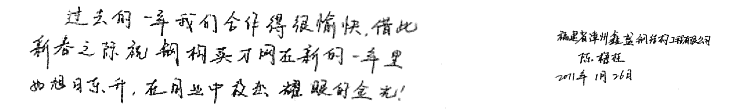 过去的一年我们合作得很愉快,借此
新春之际祝钢构英才网在新的一年里
如旭日东升,在同业中散发耀眼的金光!
福建省漳州鑫盛钢结构工程有限公司
陈
2011年1月26日